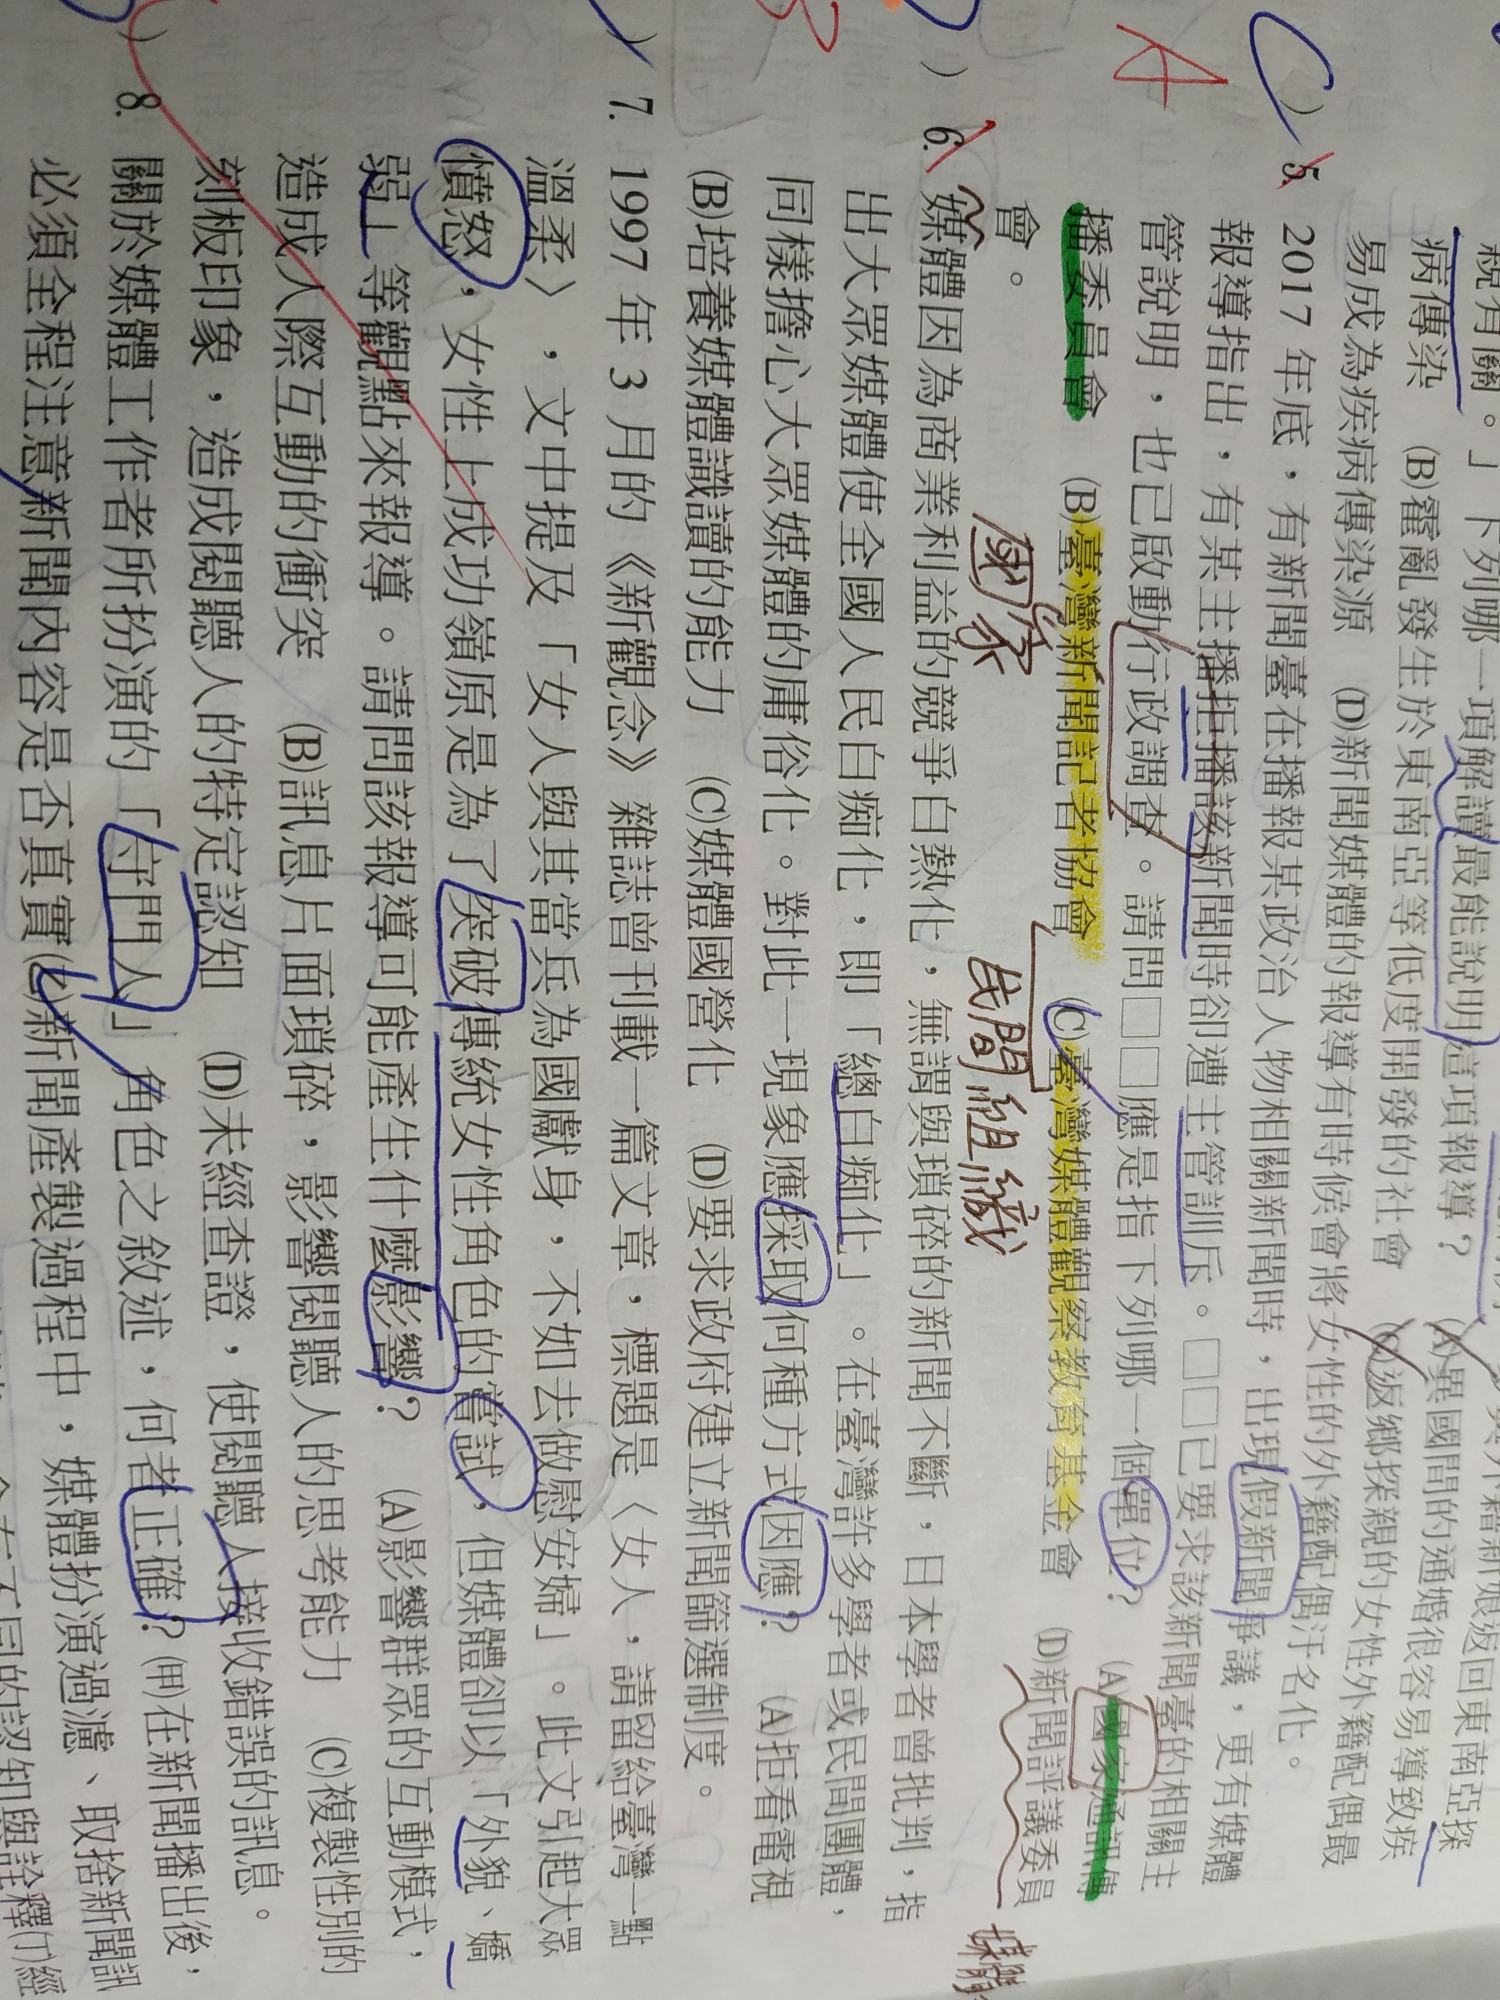 親有關。」下列哪一項解讀最能說明這項報導？ (A)異國間的通婚很容易導致疾
病傳染 (B)霍亂發生於東南亞等低度開發的社會 (C)返鄉探親的女性外籍配偶最
易成為疾病傳染源 (D)新聞媒體的報導有時候會將女性的外籍配偶汙名化。
C ) 5. 2017 年底，有新聞臺在播報某政治人物相關新聞時，出現假新聞爭議，更有媒體
報導指出，有某主播拒播該新聞時卻遭主管訓斥。□□已要求該新聞臺的相關主
A
管說明，也已啟動行政調查。請問□□應是指下列哪一個單位？ (A)國家通訊傳
播委員會 (B)臺灣新聞記者協會 (C)臺灣媒體觀察教育基金會 (D)新聞評議委員
會。
國家
民間組織
) 6. 媒體因為商業利益的競爭白熱化，無謂與瑣碎的新聞不斷，日本學者曾批判，指
出大眾媒體使全國人民白痴化，即「總白痴化」。在臺灣許多學者或民間團體，
同樣擔心大眾媒體的庸俗化。對此一現象應採取何種方式因應？ (A)拒看電視
(B)培養媒體識讀的能力 (C)媒體國營化 (D)要求政府建立新聞篩選制度。
) 7. 1997 年 3 月的《新觀念》雜誌曾刊載一篇文章，標題是〈女人，請留給臺灣一點
溫柔〉，文中提及「女人與其當兵為國獻身，不如去做慰安婦」。此文引起大眾
憤怒，女性上成功嶺原是為了突破傳統女性角色的嘗試，但媒體卻以「外貌、嬌
弱」等觀點來報導。請問該報導可能產生什麼影響？ (A)影響群眾的互動模式，
造成人際互動的衝突 (B)訊息片面瑣碎，影響閱聽人的思考能力 (C)複製性別的
刻板印象，造成閱聽人的特定認知 (D)未經查證，使閱聽人接收錯誤的訊息。
) 8. 關於媒體工作者所扮演的「守門人」角色之敘述，何者正確？(甲)在新聞播出後，
必須全程注意新聞內容是否真實(乙)新聞產製過程中，媒體扮演過濾、取捨新聞訊